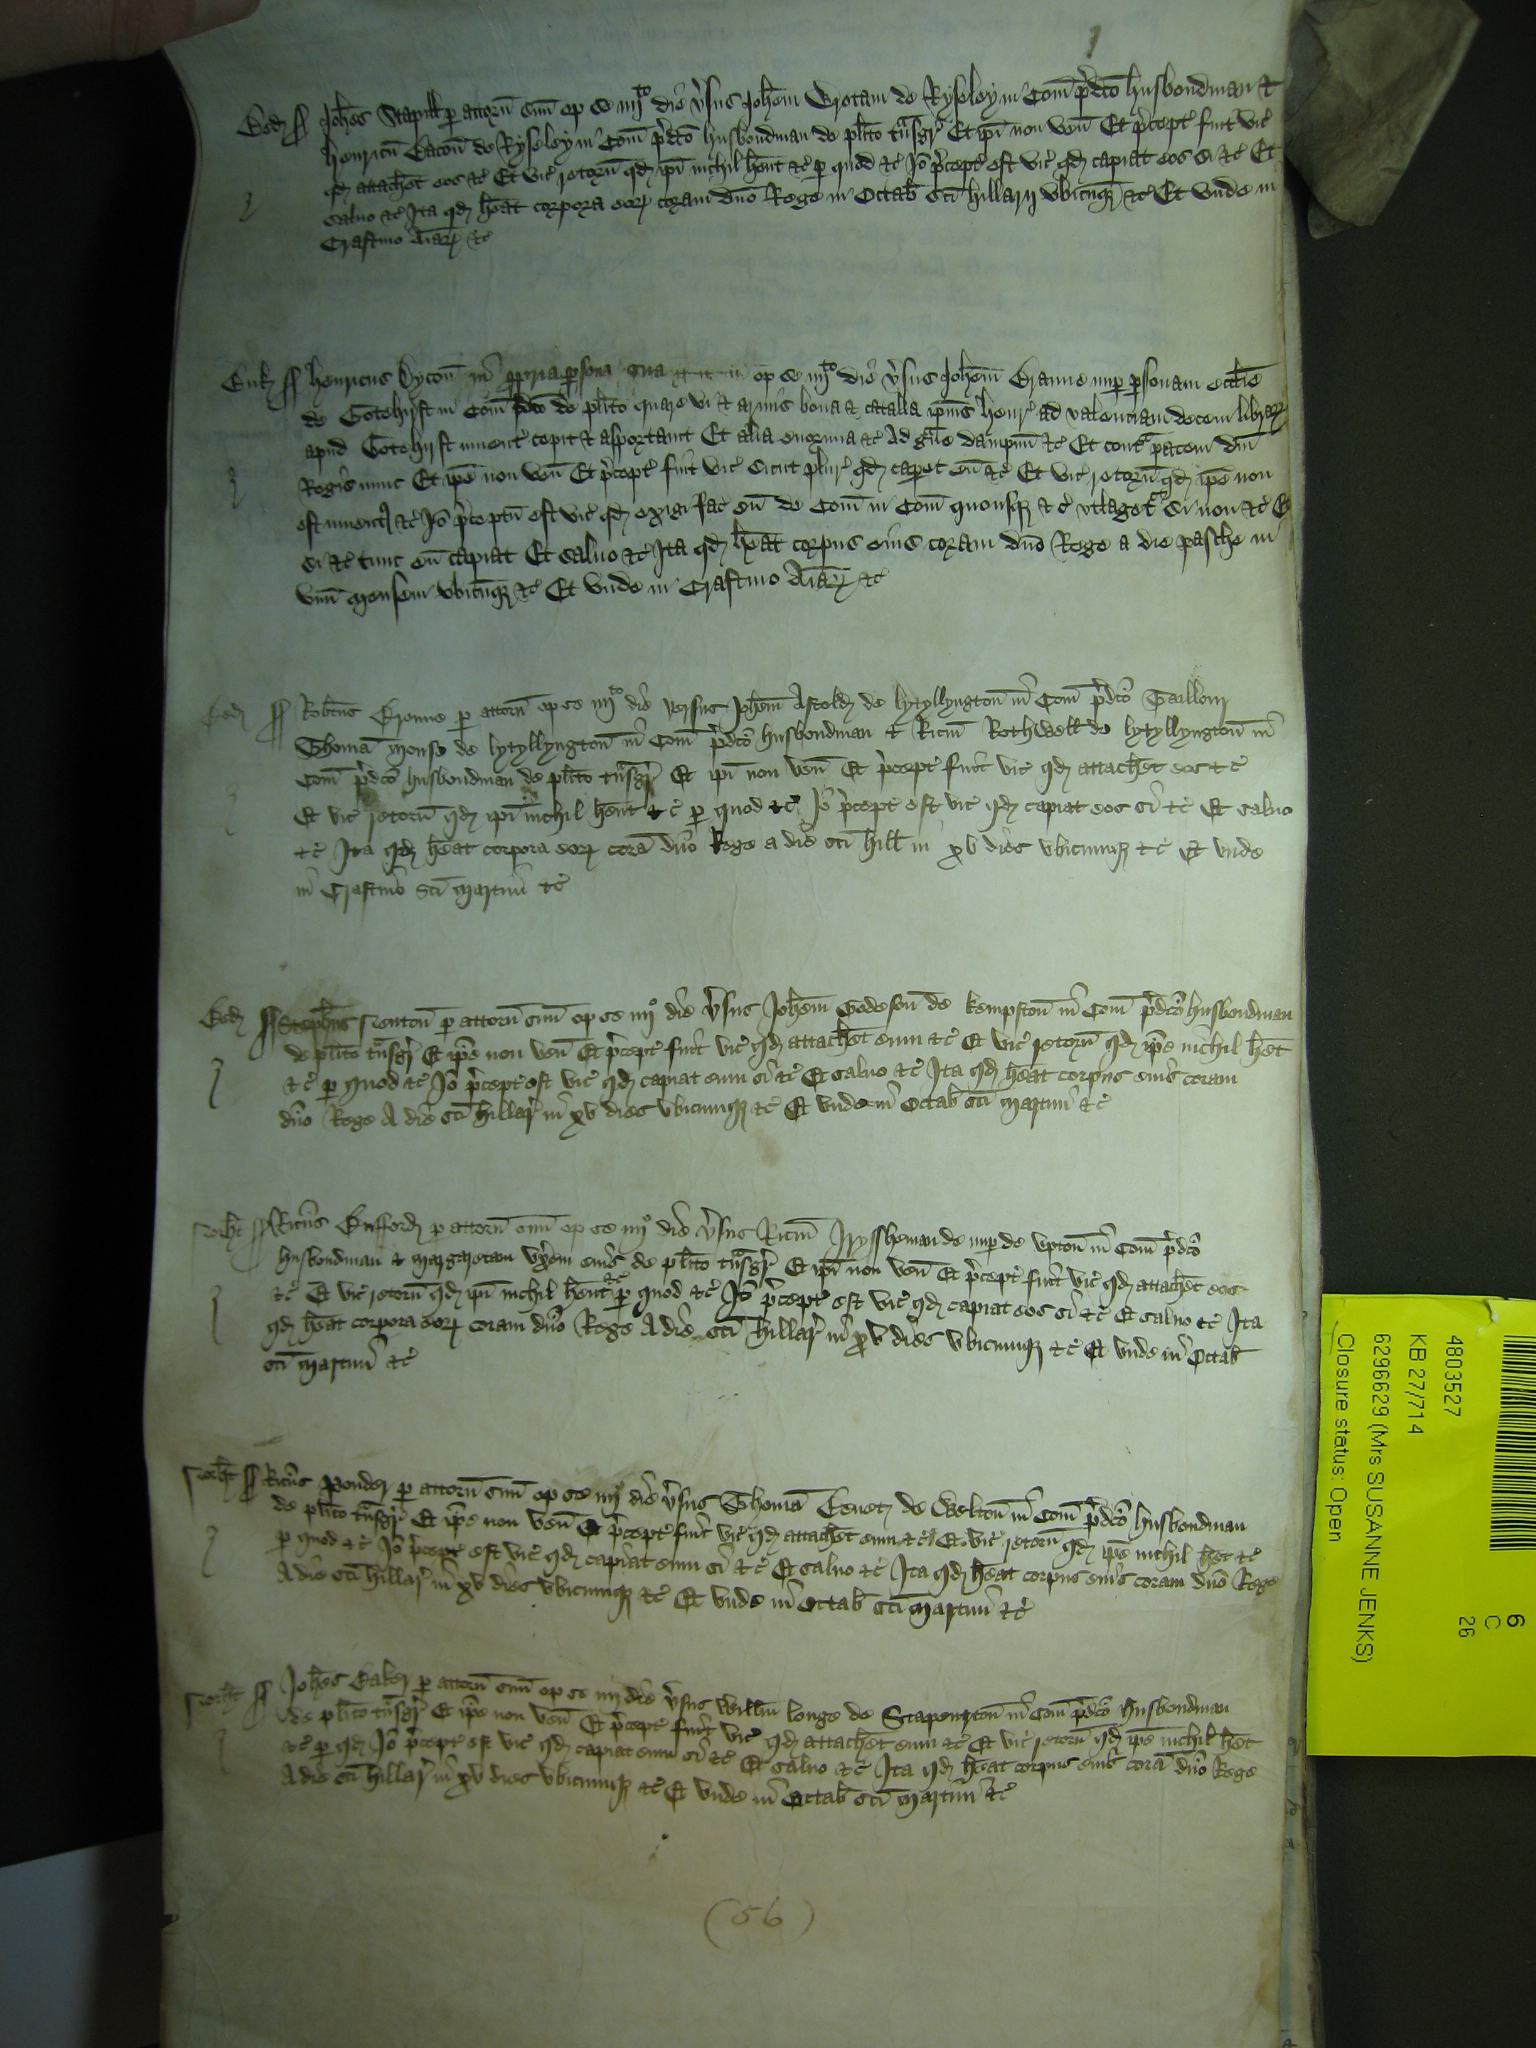 Bed ſſ Joħes Stapill p attorñ suũ op se iiijto die v̓sus Joħem Wrotam de Ryseley in Com̃ p̓dc̃o husbondman &
Henricũ Bacoũ de Ryseley in Com̃ p̓dc̃o husbondman de pl̃ito tñsgr̓ Et ip̃i non veñ Et p̓cept̓ fuit vic̓
qd attacħet eos &c̓ Et vic̓ retorñ qd ip̃i nichil ħent &c̓ p quod &c̓ Jõ p̓cept̓ est vic̓ qd capiat eos si &c̓ Et
salvo &c̓ Ita qd ħeat corpora eorꝝ coram dño Rege in Octab̃ sc̃i Hillarij vbicũqꝫ &c̓ Et vnde in
Crastino Aĩaꝝ &c̓
Buk ſſ Henricus Dycoñ in ꝓpria persona sua op se iiijto die v̓sus Joħem nup p̱sonam eccl̃ie
de Gotehirst in Com̃ p̓dc̃o de pl̃ito quare vi & armis bona & catalla ip̃ius Henr̓ ad valenciam decem librarꝝ
apud Gotehirst invent̓ cepit & asportavit Et alia enormia &c̓ Ad g̓ve dampnũ &c̓ Et cont̓ pacem dñi
Regis nunc Et ip̃e non veñ Et p̓cept̓ fuit vic̓ sicut plur̓ qd caperet eũ &c̓ Et vic̓ retorñ qd ip̃e non
est inuent &c̓ Jõ p̓ceptũ est vic̓ qd exigi fac̓ eũ de Com̃ in Com̃ quousqꝫ &c̓ vtlaget̓ Si non &c̓ Et
si &c̓ tunc eũ capiat Et salvo &c̓ Ita qd ħeat corpus eius coram dño Rege a die pasche in
vnũ mensem vbicũqꝫ &c̓ Et vnde in Crastino Aĩaꝝ &c̓
Bed ſſ Rob̃tus p attorñ op se iiijto die versus Joħem Astold de lytyllyngtoñ in Com̃ p̓dc̃o Taillour
Thomã Monse de lytyllyngtoñ in Com̃ p̓dc̃o husbondman & Ric̃m Rothwell de lytyllyngtoñ in
Com̃ p̓dc̃o husbondman de pl̃ito tñsgr̓ Et ip̃i non veñ Et p̓cept̓ fuit vic̓ qd attacħet eos &c̓
Et vic̓ retorñ qd ip̃i nichil ħent &c̓ p quod &c̓ Jõ p̓cept̓ est vic̓ qd capiat eos si &c̓ Et salvo
&c̓ Ita qd ħeat corpora eorꝝ corã dño Rege a die sc̃i Hill̃ in xv dies vbicumqꝫ &c̓ Et vnde
in Crastino sc̃i Martini &c̓
Bed ſſ Stephũs p attorñ suũ op se iiijo die v̓sus Joħem Godeson de Kempstoñ in Com̃ p̓dc̃o husbondman
de pl̃ito tñsgr̓ Et ip̃e non veñ Et p̓cept̓ fuit vic̓ qd attacħet eum &c̓ Et vic̓ retorñ qd ip̃e nichil ħet
&c̓ p quod &c̓ Jõ p̓cept̓ est vic̓ qd capiat eum si &c̓ Et salvo &c̓ Ita qd ħeat corpus eius coram
dño Rege A die sc̃i Hillar̓ in xv dies vbicumqꝫ &c̓ Et vnde in Octab̃ sc̃i Martini &c̓
Norħt ſſ Ric̃us Gufford p attorñ suũ op se iiijo die v̓sus Ric̃m Irysshman de nup de Vptoñ in Com̃ p̓dc̃o
husbondman & Margaretam vx̓em eius de pl̃ito tñsgr̓ Et ip̃i non veñ Et p̓cept̓ fuit vic̓ qd attacħet eos
&c̓ Et vic̓ retorñ qd ip̃i nichil ħent &c̓ p quod &c̓ Jõ p̓cept̓ est vic̓ qd capiat eos si &c̓ Et salvo &c̓ Ita
qd ħeat corpora eorꝝ coram dño Rege A die sc̃i Hillar̓ in xv dies vbicumqꝫ &c̓ Et vnde in Octab̃
sc̃i Martini &c̓
Norħt ſſ Ric̃us Ponder p attorñ suũ op se iiijo die v̓sus Thomã de Weltoñ in Com̃ p̓dc̃o husbondman
de pl̃ito tñsgr̓ Et ip̃e non veñ Et p̓cept̓ fuit vic̓ qd attacħet eum &c̓ Et vic̓ retorñ qd ip̃e nichil ħet &c̓
p quod &c̓ Jõ p̓cept̓ est vic̓ qd capiat eum si &c̓ Et salvo &c̓ Ita qd ħeat corpus eius coram dño Rege
A die sc̃i Hillar̓ in xv dies vbicumqꝫ &c̓ Et vnde in Octab̃ sc̃i Martini &c̓
Norħt ſſ Joħes Baker p attorñ suũ op se iiij die v̓sus Willm̃ Longe de in Com̃ p̓dc̃o husbondman
de pl̃ito tñsgr̓ Et ip̃e non veñ Et p̓cept̓ fuit vic̓ qd attacħet eum &c̓ Et vic̓ retorñ qd ip̃e nichil ħet
&c̓ p qd Jõ p̓cept̓ est vic̓ qd capiat eum si &c̓ Et salvo &c̓ Ita qd ħeat corpus eius corã dño Rege
A die sc̃i Hillar̓ in xv dies vbicumqꝫ &c̓ Et vnde in Octab̃ sc̃i Martini &c̓
(56)
6
C
26
4803527
KB 27/714
6296629 (Mrs SUSANNE JENKS)
Closure status: Open